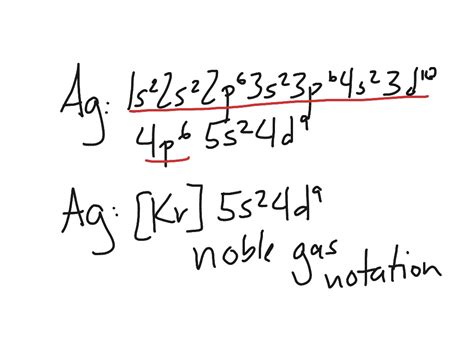 Ag: 1s²2s²2p⁶3s²3p⁶4s²3d¹⁰
4p⁶ 5s²4d⁹
Ag: [Kr] 5s²4d⁹
noble gas
notation